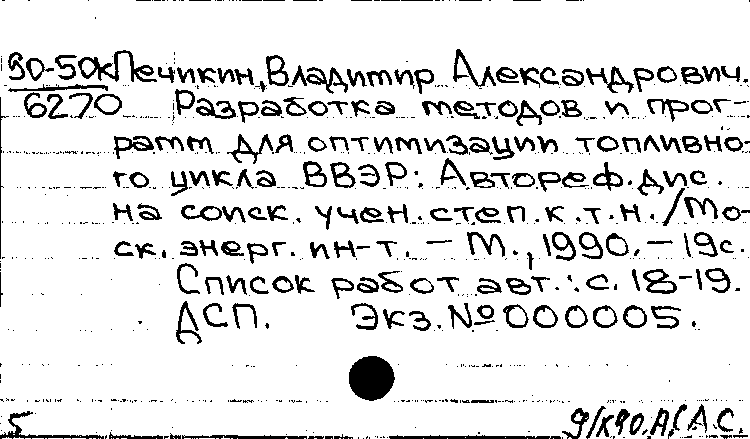 90-50к Печикин, Владимир Александрович.
6270 Разработка методов и прог-
рамм для оптимизации топливно-
го цикла ВВЭР: Автореф. дис.
на соиск. учен. степ. к.т.н./Мо-
ск. энерг. ин-т. – М., 1990. – 19с.
Список работ авт.: с. 18-19.
ДСП. Экз. № 000005.
5